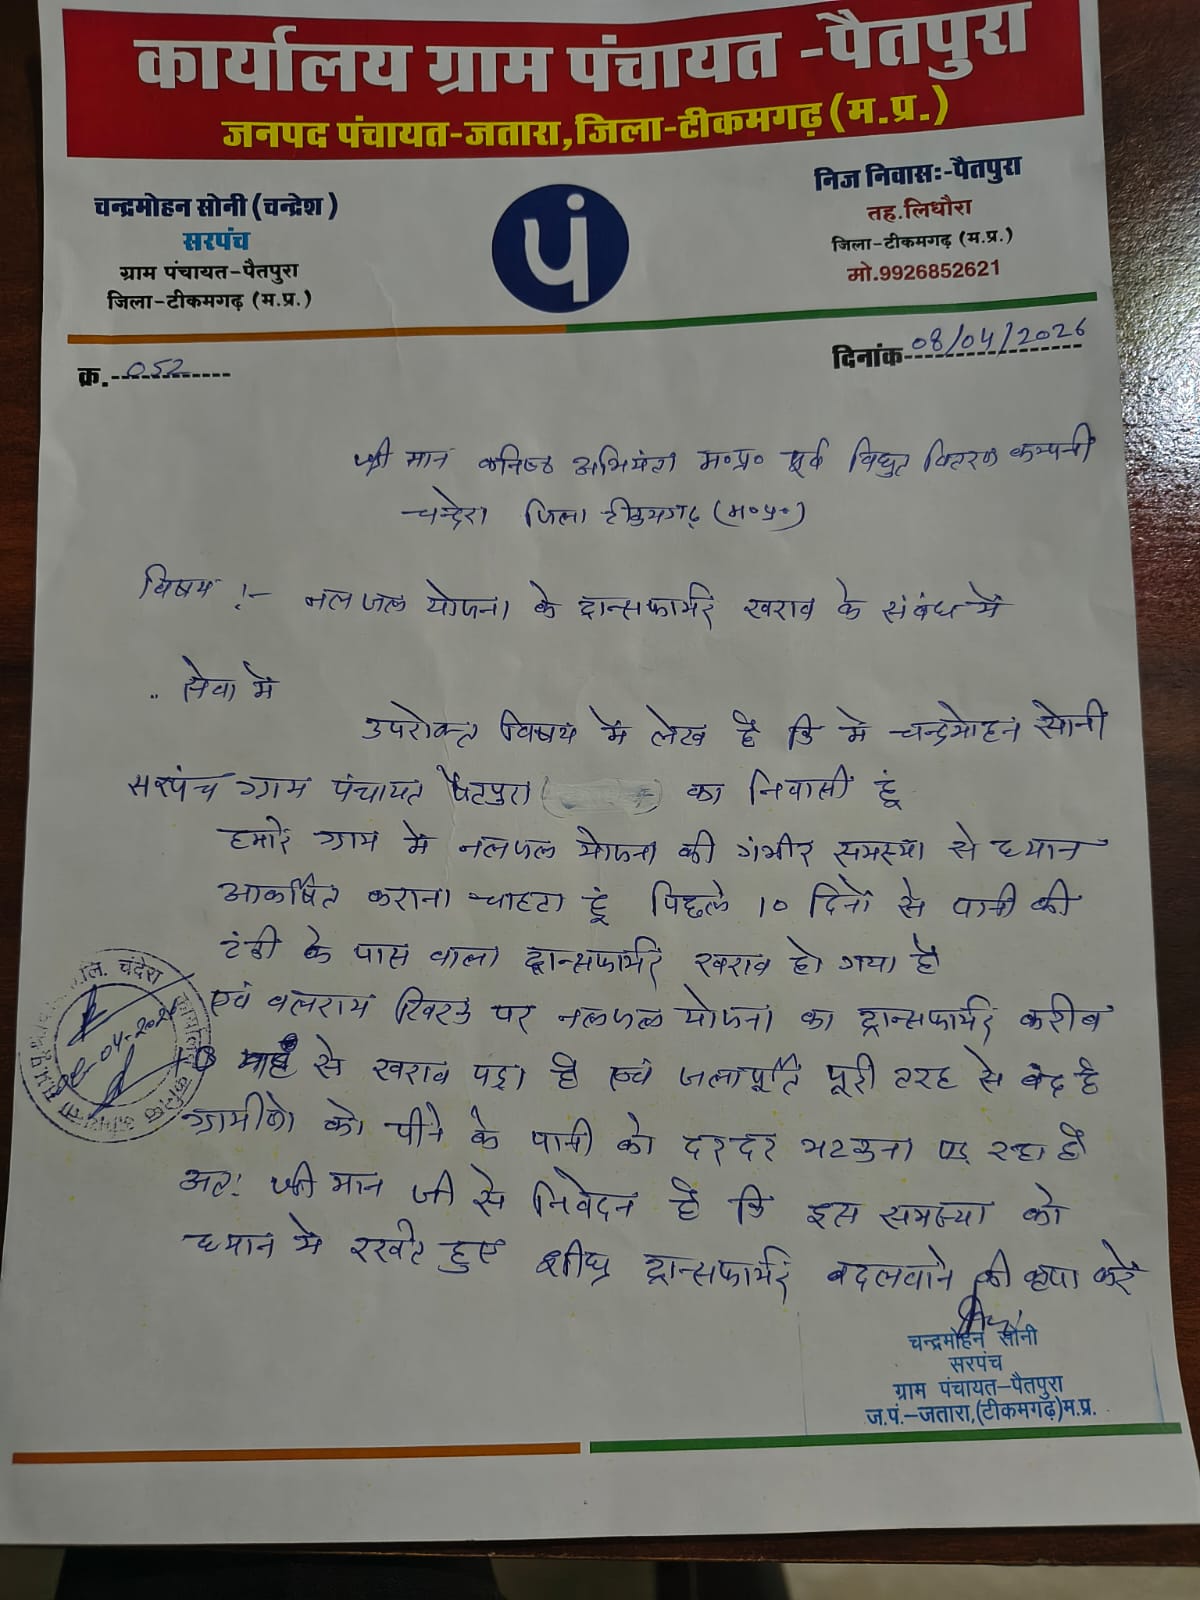 कार्यालय ग्राम पंचायत -पैतपुरा
जनपद पंचायत-जतारा,जिला-टीकमगढ़ (म.प्र.)
चन्द्रमोहन सोनी (चन्द्रेश)
सरपंच
ग्राम पंचायत-पैतपुरा
जिला-टीकमगढ़ (म.प्र.)
पं
निज निवासः-पैतपुरा
तह.लिधौरा
जिला-टीकमगढ़ (म.प्र.)
मो.9926852621
क्र. 052
दिनांक 08/04/2026
श्री मान कनिष्ठ अभियंता म॰प्र॰ पूर्व विधुत वितरण कम्पनी
चन्देरा जिला टीकमगढ़ (म॰प्र॰)
विषय :- नलजल योजना के ट्रान्सफार्मर खराव के संबंध में
सेवा में
उपरोक्त विषय में लेख है कि मे चन्द्रमोहन सोनी
सरपंच ग्राम पंचायत पैतपुरा ( ) का निवासी हूं
हमारे ग्राम मे नलजल योजना की गंभीर समस्या से ध्यान
आकर्षित कराना चाहता हूं पिछले 10 दिनों से पानी की
टंकी के पास वाला ट्रान्सफार्मर खराव हो गया है
एवं वलराम पर नलजल योजना का ट्रान्सफार्मर करीव
माह से खराव पड़ा है एवं जलापूर्ति पूरी तरह से बंद है
ग्रामीणो को पीने के पानी को दरदर भटकना पड़ रहा है
अतः श्री मान जी से निवेदन है कि इस समस्या को
ध्यान मे रखते हुए शीघ्र ट्रान्सफार्मर बदलवाने की कृपा करें
चन्द्रमोहन सोनी
सरपंच
ग्राम पंचायत-पैतपुरा
ज.पं.-जतारा,(टीकमगढ़)म.प्र.